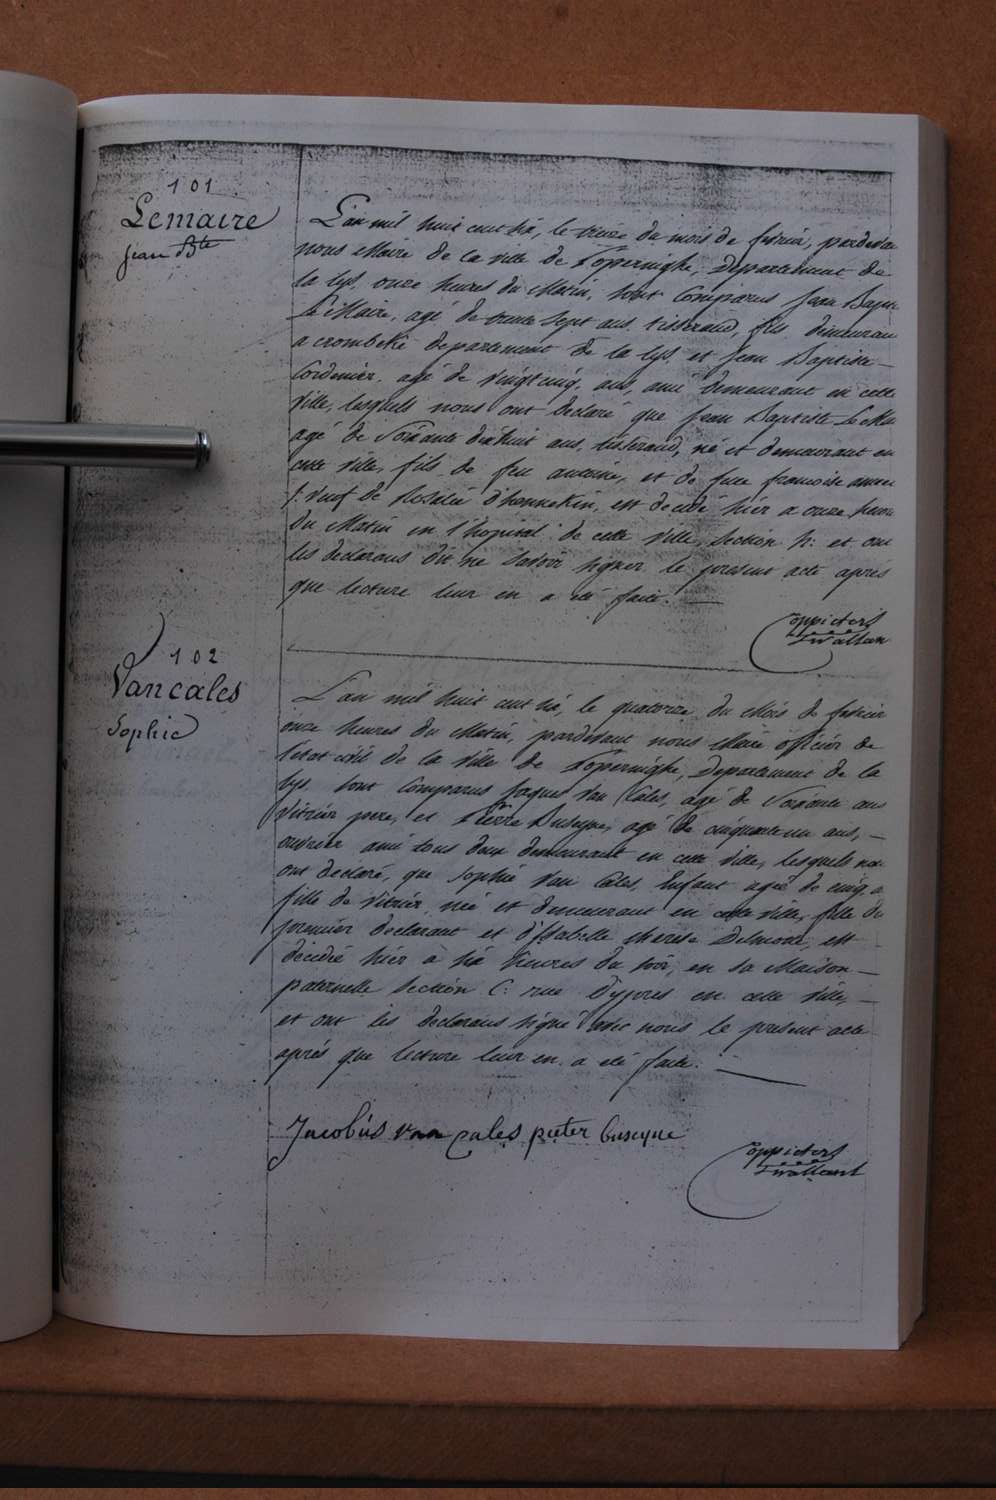 101
Lemaire
Jean Bte
L'an mil huit cent six, le treize du mois de fevrier, pardevan
nous Maire de la ville de Poperinghe, Departement de
la lys, onze heures du Matin, sont Comparus Jean Bapte
Le Maire, agé de trente sept ans, tisserand, fils demeuran
a crombeke departement de la lys, et Jean Baptiste
Cordenier, agé de vingt cinq ans, ami demeurant en cette
ville, lesquels nous ont declaré que Jean Baptiste Le Ma
agé de Soixante dixhuit ans, tisserand, né et demeurant en
cette ville, fils de feu antoine, et de feue francoise
veuf de Rosalie D'hennekin, est decedé hier a onze heures
du Matin en l'hopital de cette ville, section h: et ont
les declarans dit ne Savoir signer le present acte apres
que lecture leur en a été faite.
102
Vancales
Sophie
L'an mil huit cent six, le quatorze du Mois de fevrier
onze heures du Matin, pardevant nous Maire officier de
l'etat civil de la ville de Poperinghe, Departement de la
lys, sont Comparus Jaques Van Cales, agé de Soixante ans
vitrier pere, et Pierre Buseyne, agé de cinquante un ans,
ouvrier ami tous deux demeurant en cette ville, lesquels no
ont declaré, que Sophie Van Cales, Enfant agée de cinq a
fille de Vitrier, née et demeurant en cette ville, fille du
premier declarant et d'Isabelle therese Delmotte, est
décédée hier à six heures du soir, en sa Maison
paternelle section C: rue D'ypres en cette ville,
et ont les declarans signé avec nous le present acte
aprés que lecture leur en a été faite.
Jacobus van cales pieter buseyne